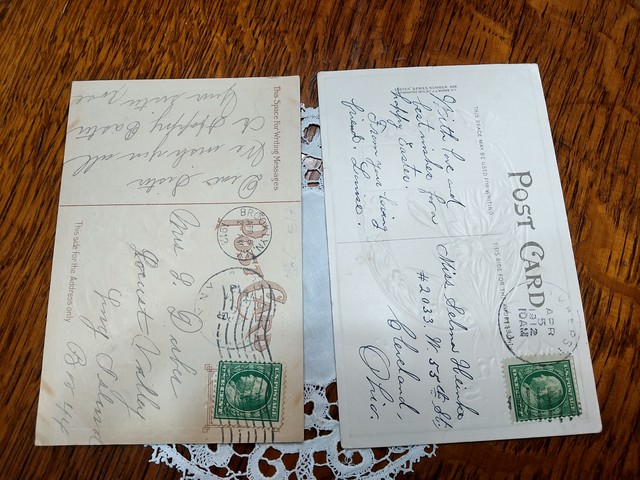 This Space for Writing Messages
Dear Sister
We wish you all
A Happy Easter
Your Sister Rose
This side for the Address only
Post Card
N.Y.
Mrs
Locust Valley
Long Island
Box 44
POST CARD
THIS SPACE MAY BE USED FOR WRITING
THIS SIDE FOR THE
With love and
best wishes for a
happy Easter.
From your loving
friend, Louise.
Miss Selma
#2033. W. 55th St.
Cleveland,
Ohio.
APR
5
1912
10 AM